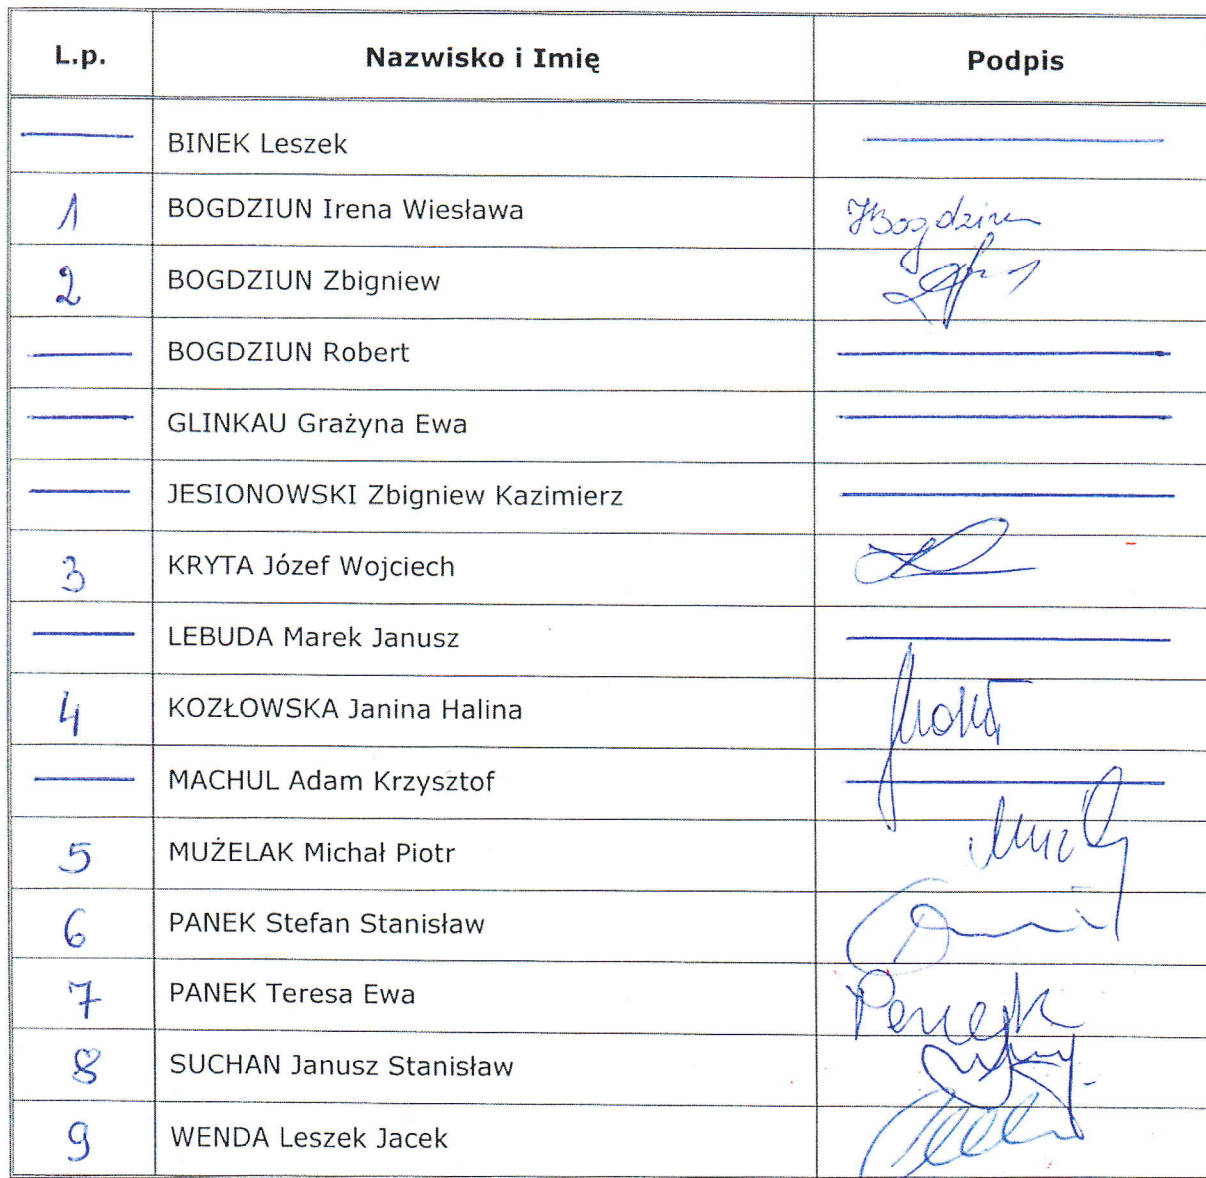 L.p. Nazwisko i Imię Podpis
BINEK Leszek
1 BOGDZIUN Irena Wiesława
2 BOGDZIUN Zbigniew
BOGDZIUN Robert
GLINKAU Grażyna Ewa
JESIONOWSKI Zbigniew Kazimierz
3 KRYTA Józef Wojciech
LEBUDA Marek Janusz
4 KOZŁOWSKA Janina Halina
MACHUL Adam Krzysztof
5 MUŻELAK Michał Piotr
6 PANEK Stefan Stanisław
7 PANEK Teresa Ewa
8 SUCHAN Janusz Stanisław
9 WENDA Leszek Jacek